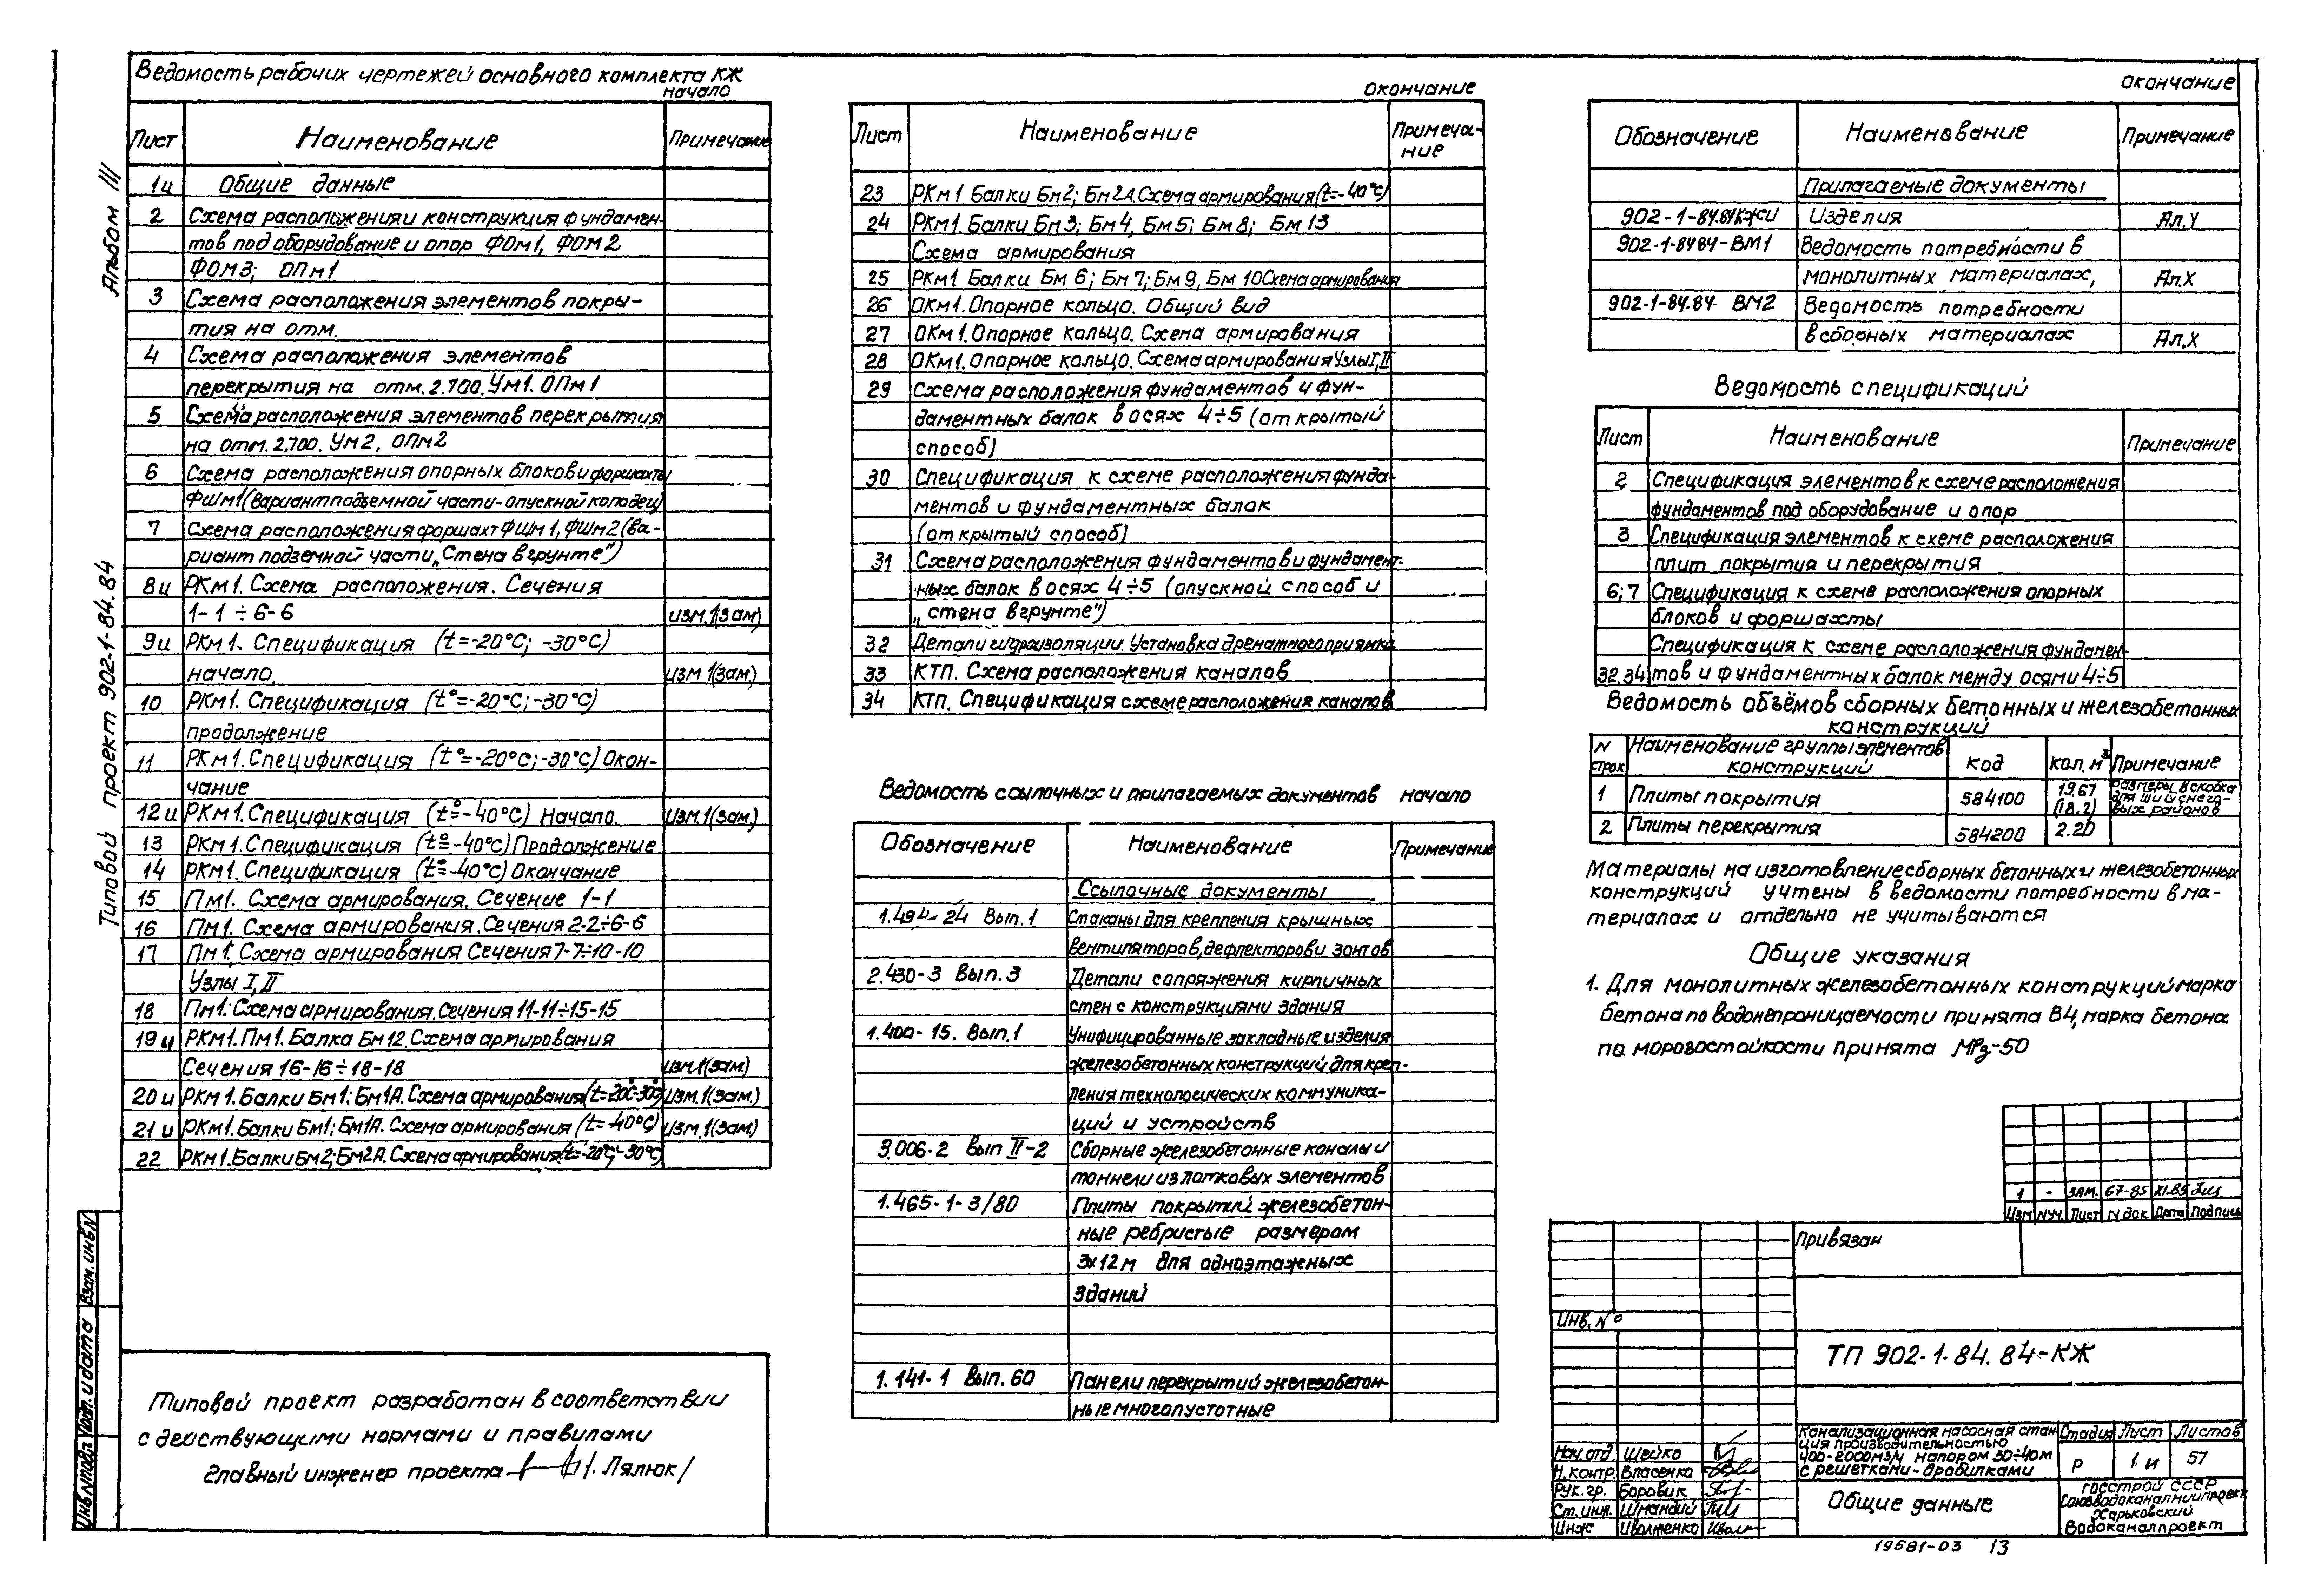 Альбом III
Типовой проект 902-1-84.84
Ведомость рабочих чертежей основного комплекта КЖ
начало
Лист Наименование Примечание
1и Общие данные
2 Схема расположения и конструкция фундамен-
тов под оборудование и опор ФОм1, ФОм2
ФОм3; ОПм1
3 Схема расположения элементов покры-
тия на отм.
4 Схема расположения элементов
перекрытия на отм. 2.700. Ум1. ОПм1
5 Схема расположения элементов перекрытия
на отм. 2,700. Ум2, ОПм2
6 Схема расположения опорных блоков и форшахты
ФШм1 (Вариант подземной части-опускной колодец)
7 Схема расположения форшахт ФШм1, ФШм2 (ва-
риант подземной части „Стена в грунте")
8и РКм1. Схема расположения. Сечения
1-1 ÷ 6-6 изм.1(зам)
9и РКм1. Спецификация (t=-20°С; -30°С)
начало. изм 1(зам.)
10 РКм1. Спецификация (t°=-20°С; -30°С)
продолжение
11 РКм1. Спецификация (t°=-20°С; -30°С) Окон-
чание
12и РКм1. Спецификация (t°=-40°С) Начало. изм.1(зам.)
13 РКм1. Спецификация (t°=-40°С) Продолжение
14 РКм1. Спецификация (t°=-40°С) Окончание
15 Пм1. Схема армирования. Сечение 1-1
16 Пм1. Схема армирования. Сечения 2-2÷6-6
17 Пм1. Схема армирования Сечения 7-7÷10-10
Узлы I, II
18 Пм1. Схема армирования. Сечения 11-11÷15-15
19и РКм1. Пм1. Балка Бм12. Схема армирования
Сечения 16-16÷18-18 изм.1(зам)
20и РКм1. Балки Бм1; Бм1А. Схема армирования (t=-20°С-30°С) изм.1(зам.)
21и РКм1. Балки Бм1; Бм1А. Схема армирования (t=-40°С) изм.1(зам)
22 РКм1. Балки Бм2; Бм2А. Схема армирования (t=-20°С-30°С)
Типовой проект разработан в соответствии
с действующими нормами и правилами
Главный инженер проекта / Лялюк/
Инв.N подл. Подп. и дата Взам. инв.N
окончание
Лист Наименование Примеча-
ние
23 РКм1 Балки Бм2; Бм2А. Схема армирования (t=-40°С)
24 РКм1. Балки Бм3; Бм4, Бм5; Бм8; Бм13
Схема армирования
25 РКм1 Балки Бм6; Бм7; Бм9, Бм10 Схема армирования
26 ОКм1. Опорное кольцо. Общий вид
27 ОКм1. Опорное кольцо. Схема армирования
28 ОКм1. Опорное кольцо. Схема армирования Узлы I, II
29 Схема расположения фундаментов и фун-
даментных балок в осях 4÷5 (открытый
способ)
30 Спецификация к схеме расположения фунда-
ментов и фундаментных балок
(открытый способ)
31 Схема расположения фундаментов и фундамент-
ных балок в осях 4÷5 (опускной способ и
„стена в грунте")
32 Детали гидроизоляции. Установка дренажного приямка
33 КТП. Схема расположения каналов
34 КТП. Спецификация к схеме расположения каналов
Ведомость ссылочных и прилагаемых документов начало
Обозначение Наименование Примечание
Ссылочные документы
1.494-24 Вып.1 Стаканы для крепления крышных
вентиляторов, дефлекторов и зонтов
2.430-3 Вып.3 Детали сопряжения кирпичных
стен с конструкциями здания
1.400-15. Вып.1 Унифицированные закладные изделия
железобетонных конструкций для креп-
ления технологических коммуника-
ций и устройств
3.006-2 Вып II-2 Сборные железобетонные каналы и
тоннели из лотковых элементов
1.465-1-3/80 Плиты покрытий железобетон-
ные ребристые размером
3х12м для одноэтажных
зданий
1.141-1 Вып.60 Панели перекрытий железобетон-
ные многопустотные
окончание
Обозначение Наименование Примечание
Прилагаемые документы
902-1-84.84КЖИ Изделия Ал.V
902-1-8484-ВМ1 Ведомость потребности в
монолитных материалах, Ал.X
902-1-84.84-ВМ2 Ведомость потребности
в сборных материалах Ал.X
Ведомость спецификаций
Лист Наименование Примечание
2 Спецификация элементов к схеме расположения
фундаментов под оборудование и опор
3 Спецификация элементов к схеме расположения
плит покрытия и перекрытия
6;7 Спецификация к схеме расположения опорных
блоков и форшахты
Спецификация к схеме расположения фундамен-
32.34 тов и фундаментных балок между осями 4÷5
Ведомость объёмов сборных бетонных и железобетонных
конструкций
N строк Наименование группы элементов конструкций Код Кол. м³ Примечание
1 Плиты покрытия 584100 19.67 (18.2) Размеры в скобках для III и IV снего-
вых районов
2 Плиты перекрытия 584200 2.20
Материалы на изготовление сборных бетонных и железобетонных
конструкций учтены в ведомости потребности в ма-
териалах и отдельно не учитываются
Общие указания
1. Для монолитных железобетонных конструкций марка
бетона по водонепроницаемости принята В4, марка бетона
по морозостойкости принята МРз-50
1 - зам. 67-85 XI.85
Изм N уч. Лист N док. Дата Подпись
Привязан
Инв. N°
ТП 902-1-84.84-КЖ
Нач.отд. Шейко
Н.контр. Власенко
Рук.гр. Боровик
Ст.инж. Шмандий
Инж Иволженко
Канализационная насосная стан-
ция производительностью
400-2000м3/ч напором 30÷40м
с решетками-дробилками
Стадия Лист Листов
Р 1.и 57
Общие данные
Госстрой СССР
Союзводоканалниипроект
Харьковский
Водоканалпроект
19581-03 13